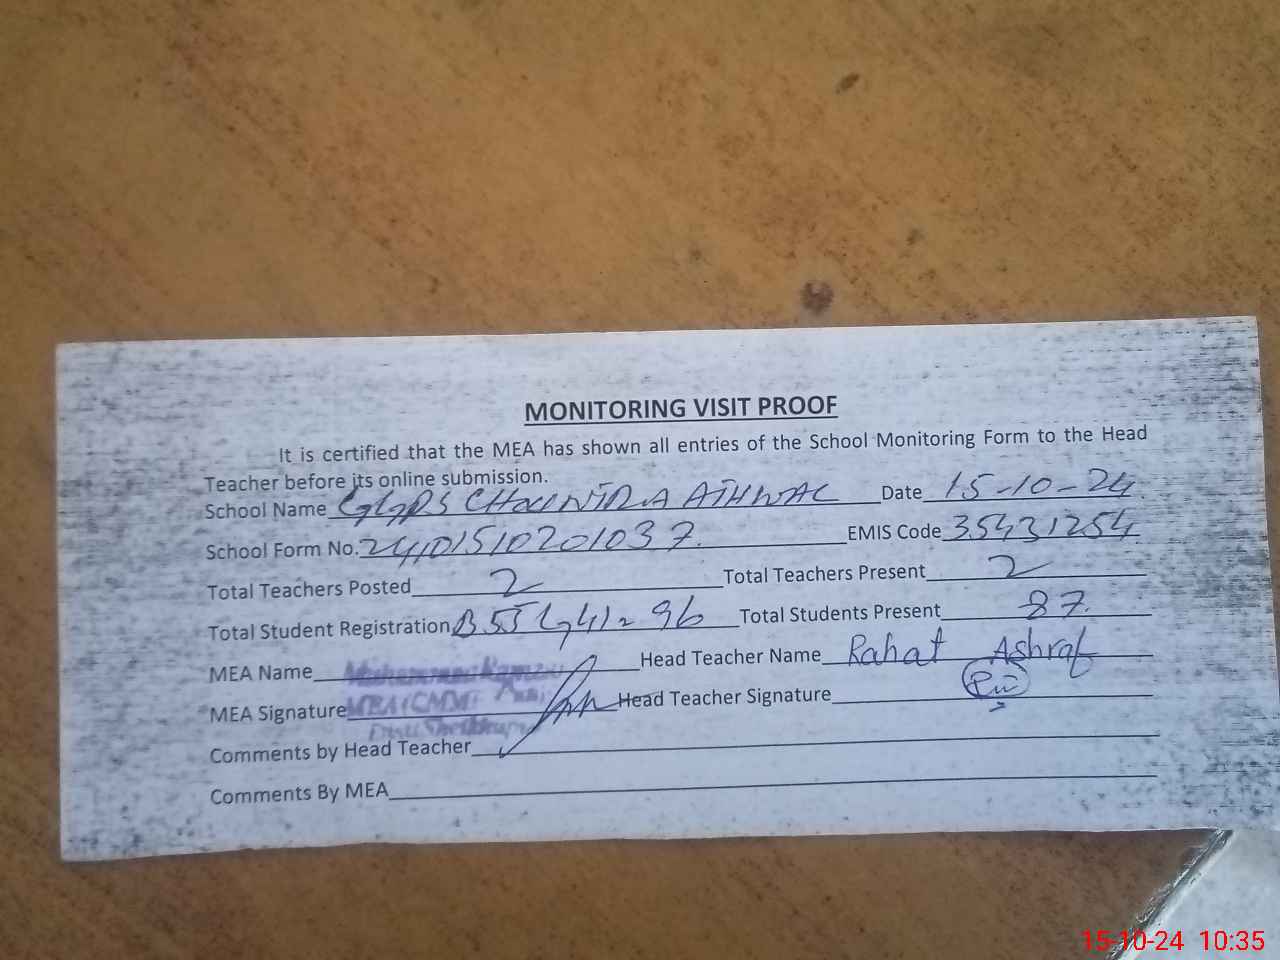 MONITORING VISIT PROOF
It is certified that the MEA has shown all entries of the School Monitoring Form to the Head
Teacher before its online submission.
School Name GGPS CHOUNTRA ATHWAL Date 15-10-24
School Form No. 24101510201037. EMIS Code 35431254
Total Teachers Posted 2 Total Teachers Present 2
Total Student Registration B55 G41 = 96 Total Students Present 87.
MEA Name Head Teacher Name Rahat Ashraf
MEA Signature Head Teacher Signature
Comments by Head Teacher
Comments By MEA
15-10-24 10:35